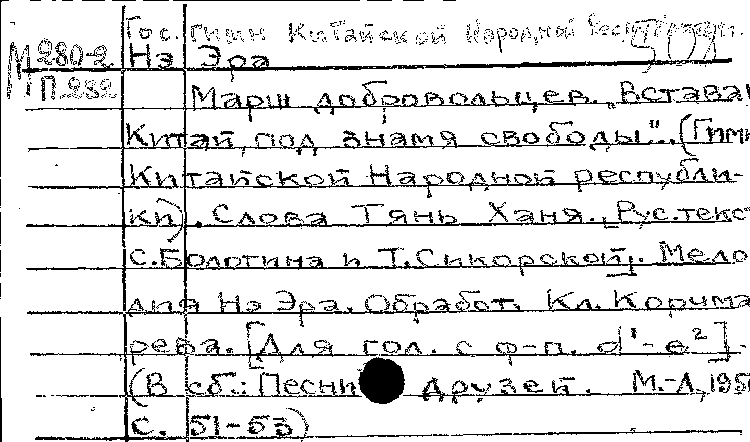 Гос. гимн Китайской Народной Республики.
М 280-2 Нэ Эра
П.282
Марш добровольцев. „Вставай
Китай, под знамя свободы". (Гимн
Китайской Народной республи-
ки). Слова Тянь Ханя. [Рус. текст
С. Болотина и Т. Сикорской]. Мело
дия Нэ Эра. Обработ. Кл. Корчма
рева. [Для гол. с ф-п. d¹-e²]-
(В сб.: Песни друзей. М.-Л, 195
с. 51-53)